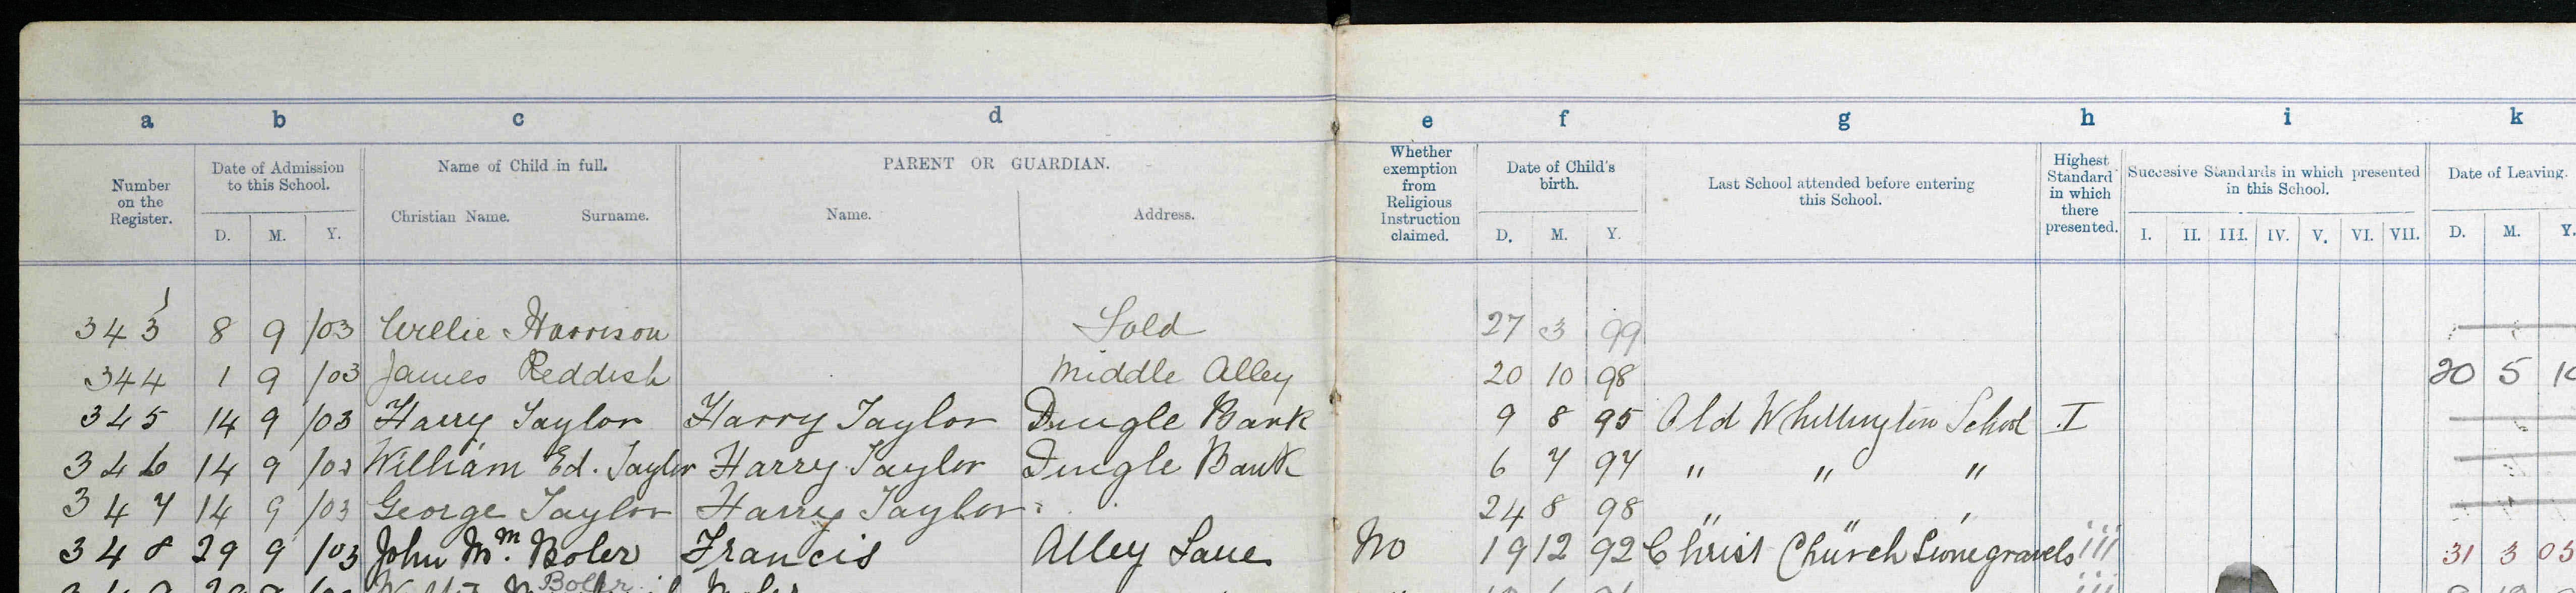 a b c d e f g h i k
Number on the Register. Date of Admission to this School. Name of Child in full. PARENT OR GUARDIAN. Whether exemption from Religious Instruction claimed. Date of Child's birth. Last School attended before entering this School. Highest Standard in which there presented. Succesive Standards in which presented in this School. Date of Leaving.
D. M. Y. Christian Name. Surname. Name. Address. D. M. Y. I. II. III. IV. V. VI. VII. D. M. Y.
343 8 9 /03 Willie Harrison Sold 27 3 99
344 1 9 /03 James Reddish Middle Alley 20 10 98 20 5
345 14 9 /03 Harry Taylor Harry Taylor Dingle Bank 9 8 95 Old Whittington School I
346 14 9 /03 William Ed. Taylor Harry Taylor Dingle Bank 6 7 97 " " "
347 14 9 /03 George Taylor Harry Taylor 24 8 98 " " "
348 29 9 /03 John Wm. Boler Francis Alley Lane No 19 12 92 Christ Church Stonegravels iii 31 3 05
Boler